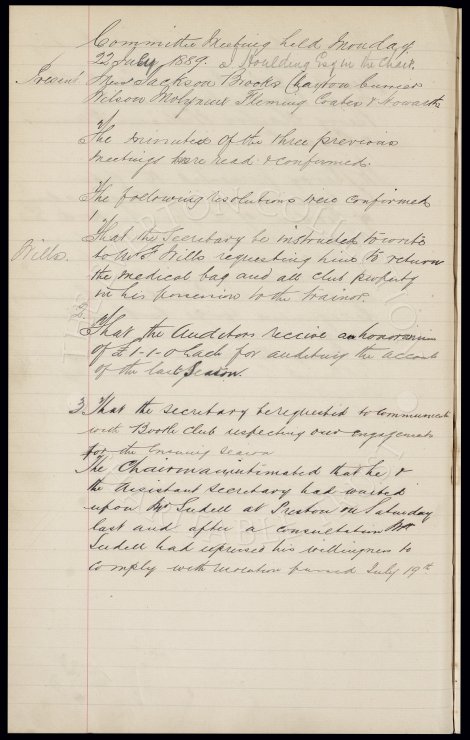 Committee Meeting held Monday
22 July 1889. J Houlding Esq in the Chair.
Present Jackson Brooks Clayton
Wilson Molyneux Fleming Coates & Howarth
The minutes of the three previous
meetings were read & confirmed.
The following resolutions were confirmed
1 That the Secretary be instructed to write
Wills. to Mr Wills requesting him to return
the medical bag and all club property
in his possession to the trainor.
2 That the Auditors receive an honorarium
of £1-1-0 Each for auditing the accounts
of the last Season.
3 That the secretary be requested to communicate
with Bootle Club respecting our engagements
for the Ensuing season
The Chairman intimated that he &
the assistant secretary had waited
upon Mr Sudell at Preston on Saturday
last and after a consultation Mr
Sudell had expressed his willingness to
comply with resolution passed July 19th